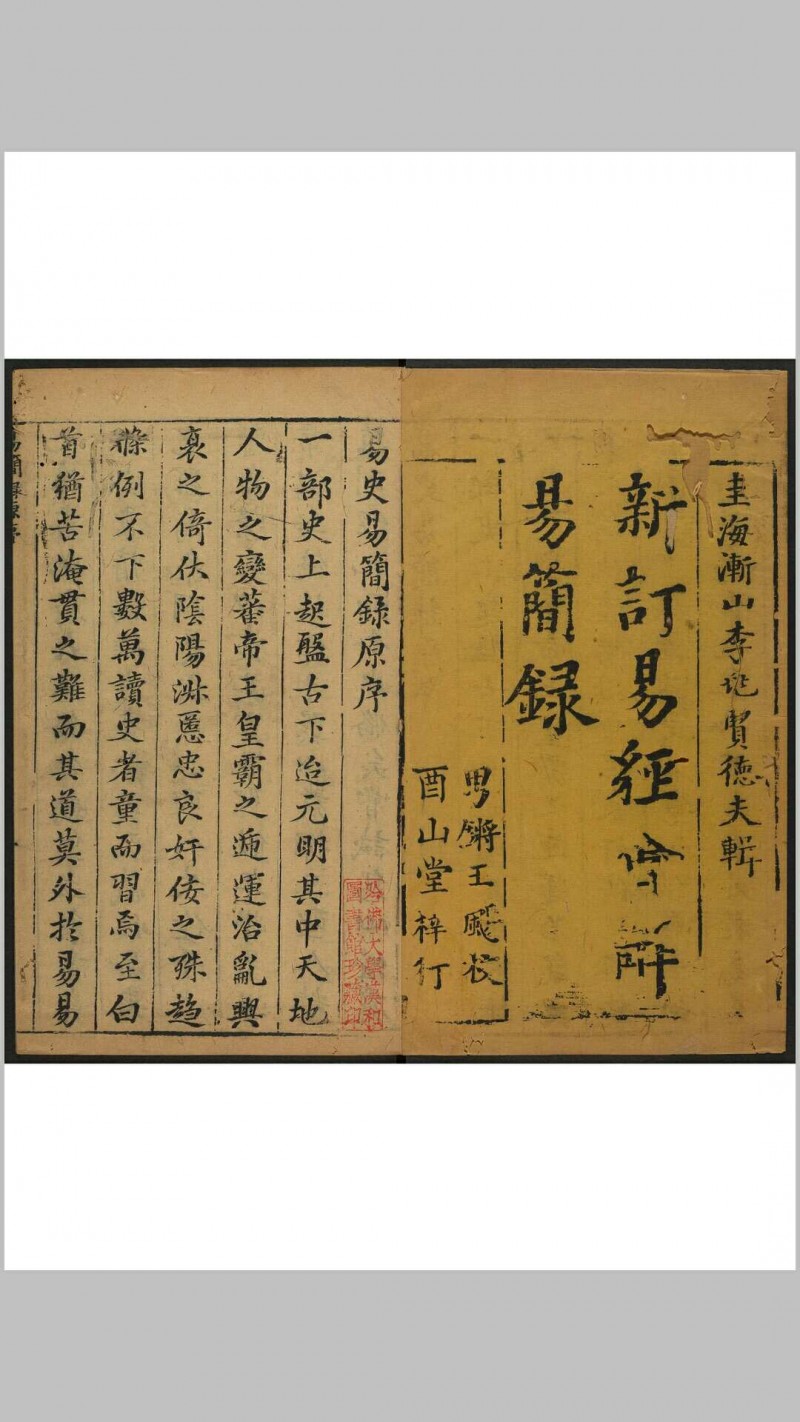 圭海漸山李兆賢德夫輯
新訂易經
易簡錄
男鏘王颺校
酉山堂梓行
易史易簡錄原序
一部史上起盤古下迨元明其中天地
人物之變蕃帝王皇霸之遞運治亂興
衰之倚伏陰陽淑慝忠良奸佞之殊趋
條例不下數萬讀史者童而習焉至白
首猶苦淹貫之難而其道莫外於易易
哈佛大學漢和
圖書館珍藏印